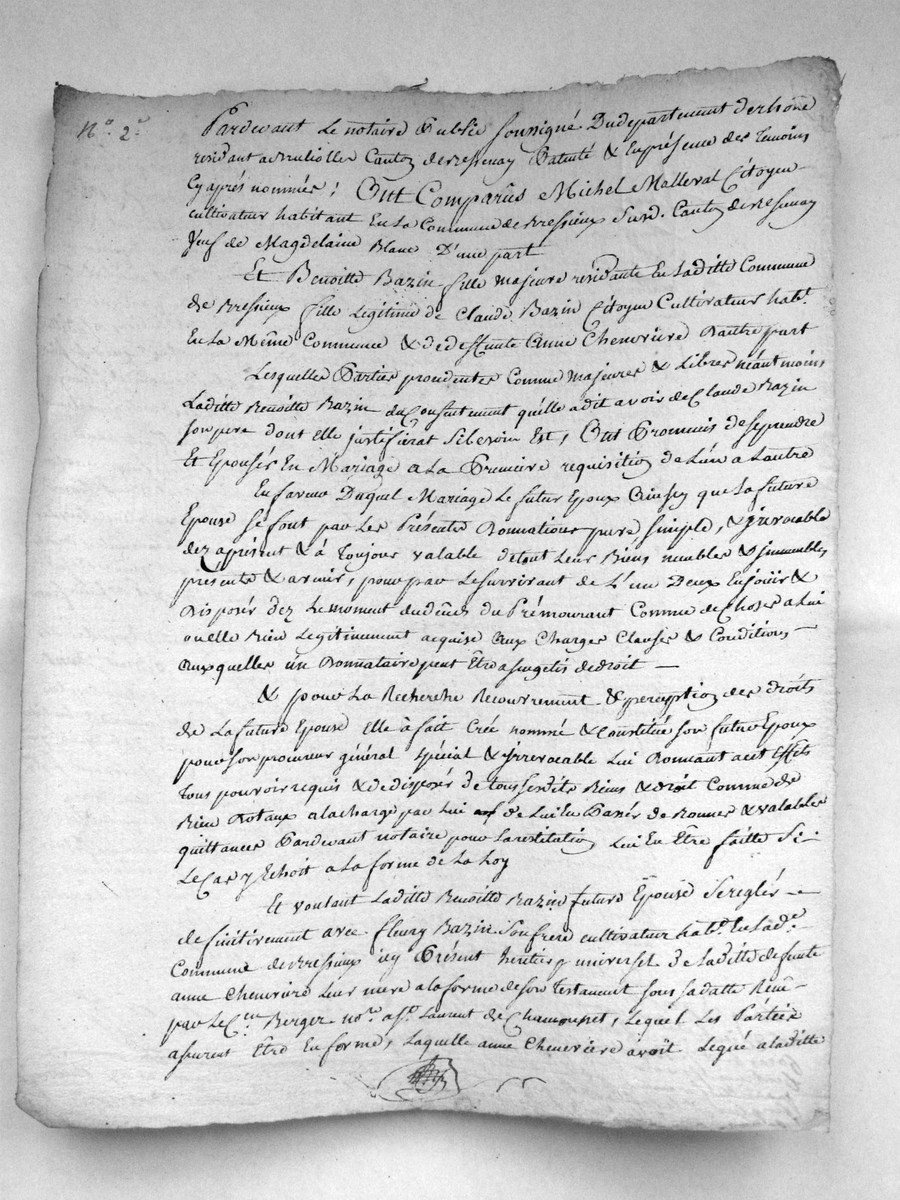 N.° 2.e
Pardevant Le notaire Publie soussigné Dudepartement derhone
residant Canton Patenté & Enprésence des Temoins
Cyaprés nommés; Ont Comparûs Michel Malleval Citoyen
cultivateur habitant En La Commune de Bressieux Canton de
Veuf de Magdelaine Blanc D'une part
Et Benoitte Bazin fille majeure residante En Laditte Commune
de Bressieux fille Legitime de Claude Bazin Citoyen Cultivateur habt.
En La Même Commune & de deffunte Anne Cheneviere Dautre part
Lesquelles Parties procedentes Comme majeures & Libres néantmoins
Laditte Benoitte Bazin du Consentement quille adit avoir de Claude Bazin
son pere dont elle justifierat Sibesoin Est, Ont Promis de seprendre
Et Epousér En Mariage a La Premiere requisition de Lun a Lautre
En faveur Duquel Mariage Le futur Epoux Ainsy que La future
Epouse Se font par Les Présentes Donnations pure simple, & irrevocable
dez aprésent & à Toujour valable detout Leur Biens meubles & immeubles
présents & avenir, pour par Lesurvivant de L'un Deux Enjoüir &
Disposér dez Le moment dudécès du Prémourant Comme de Choses a Lui
ou elle Bien Legitimement acquise Aux Charges Clauses & Conditions
Auxquelles un Donnataire peut Être assugetis dedroit
& pour La Recherche Recouvrement & perception des droits
de La future Epouse Elle à fait Créé nommé & Constitué son futur Epoux
pour son procureur général spécial & irrevocable Lui Donnant acet Effets
Tous pouvoir requis & de disposér de tous sesdits Biens & droit Comme de
Bien Dotaux alacharge par Lui de Lui En Passér de Bonnes & valables
quittances Pardevant notaire pour Larestitution Lui En Être faitte Si
Le Cas y Echoit a La forme de La Loy
Et voulant Laditte Benoitte Bazin future Épouse Seréglér
definitivement avec fleury Bazin Sonfrere cultivateur habt. En Lade.
Commune de Bressieux icy Présent heritier universel De Laditte defunte
anne Cheneviere Leur mere a la forme de son Testament sous sadatte Reçue
par Le Cen Berger nore. a St. Laurent de Chamousset, Lequel Les Parties
assurent Être En forme, Laquelle anne Cheneviere avoit Legué a laditte